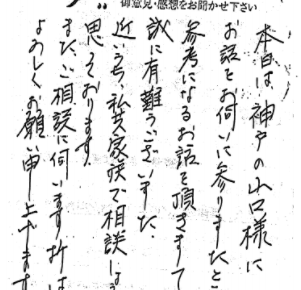 御意見・感想をお聞かせ下さい
本日は、神戸の山口様に
お話をお伺いに参りましたと
参考になるお話を頂きまして
誠に有難うございました。
近いうち、私共家族で相談しよ
思っております。
またご相談に伺います折は
よろしくお願い申し上げます